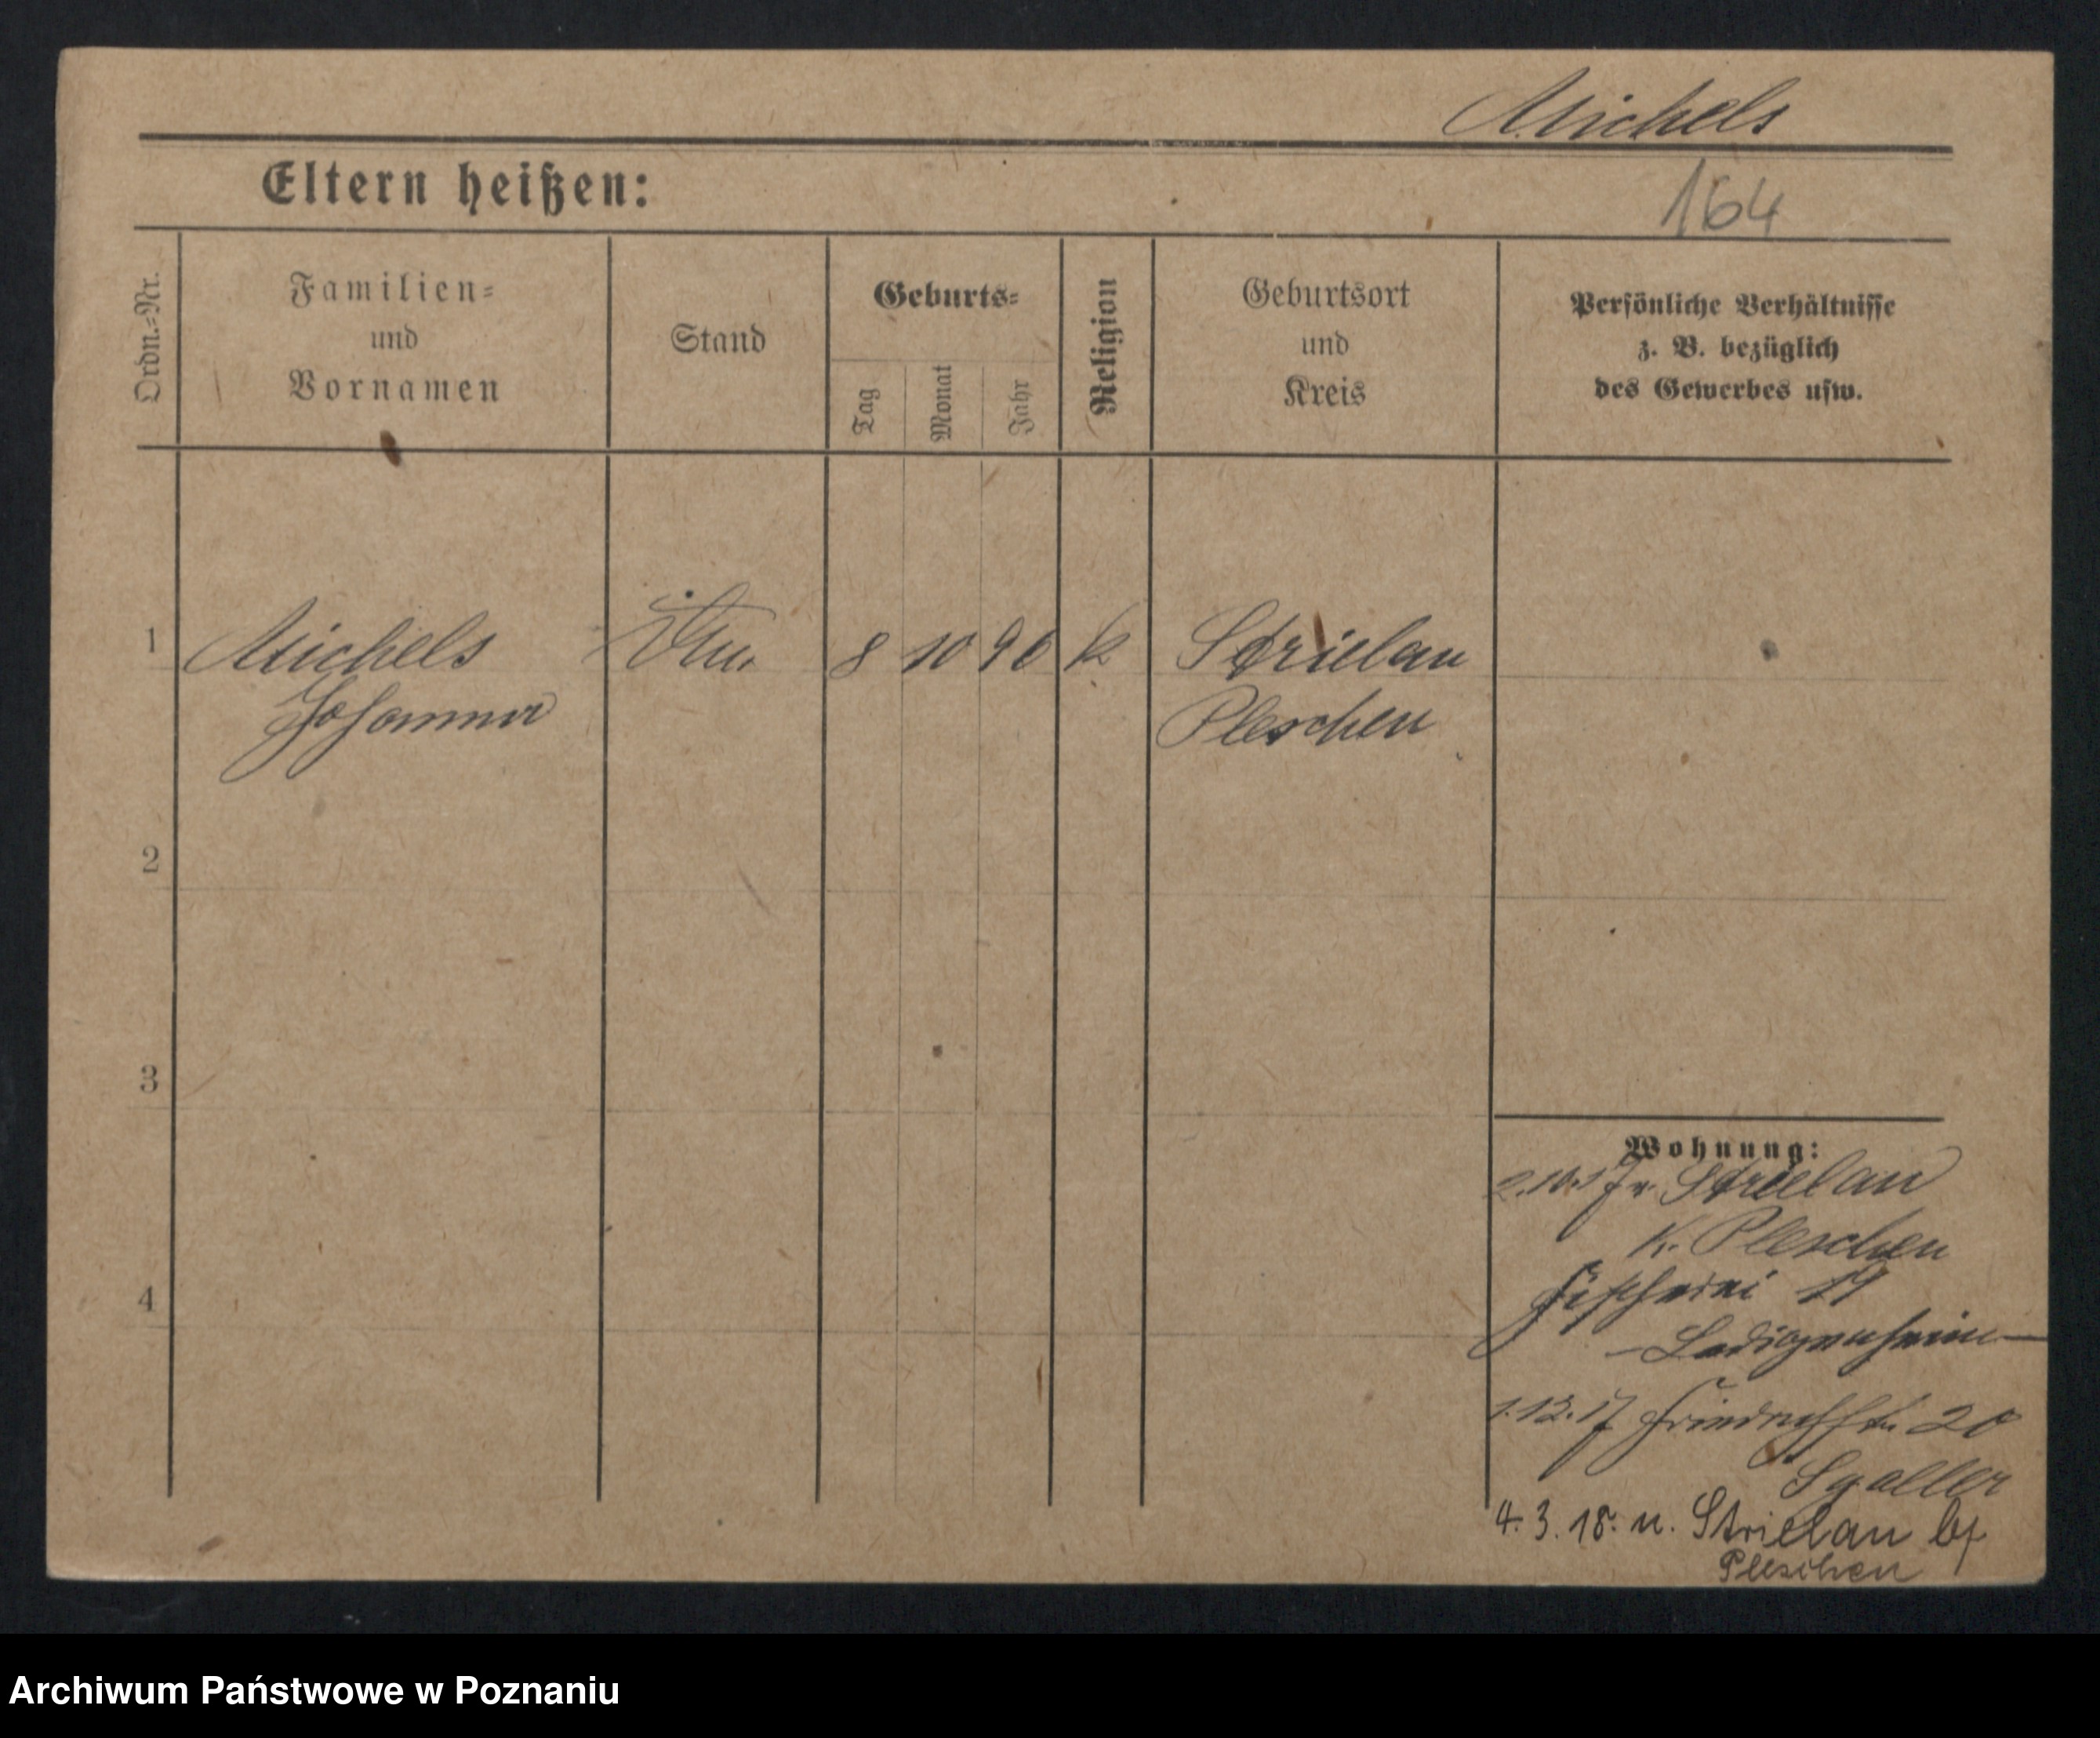 Michels
Eltern heißen:
164
Ordn.-Nr.
Familien-
und
Vornamen
Stand
Geburts-
Tag
Monat
Jahr
Religion
Geburtsort
und
Kreis
Persönliche Verhältnisse
z. B. bezüglich
des Gewerbes usw.
1
Michels
Johanna
8 10 90 k
Strielau
Pleschen
2
3
4
Wohnung:
2.10.17 v. Strielau
K. Pleschen
Fischerei 19
- Ledigenheim -
1.12.17 Friedrichstr. 20
Sgaller
4. 3. 18. n. Strielau
Pleschen
Archiwum Państwowe w Poznaniu